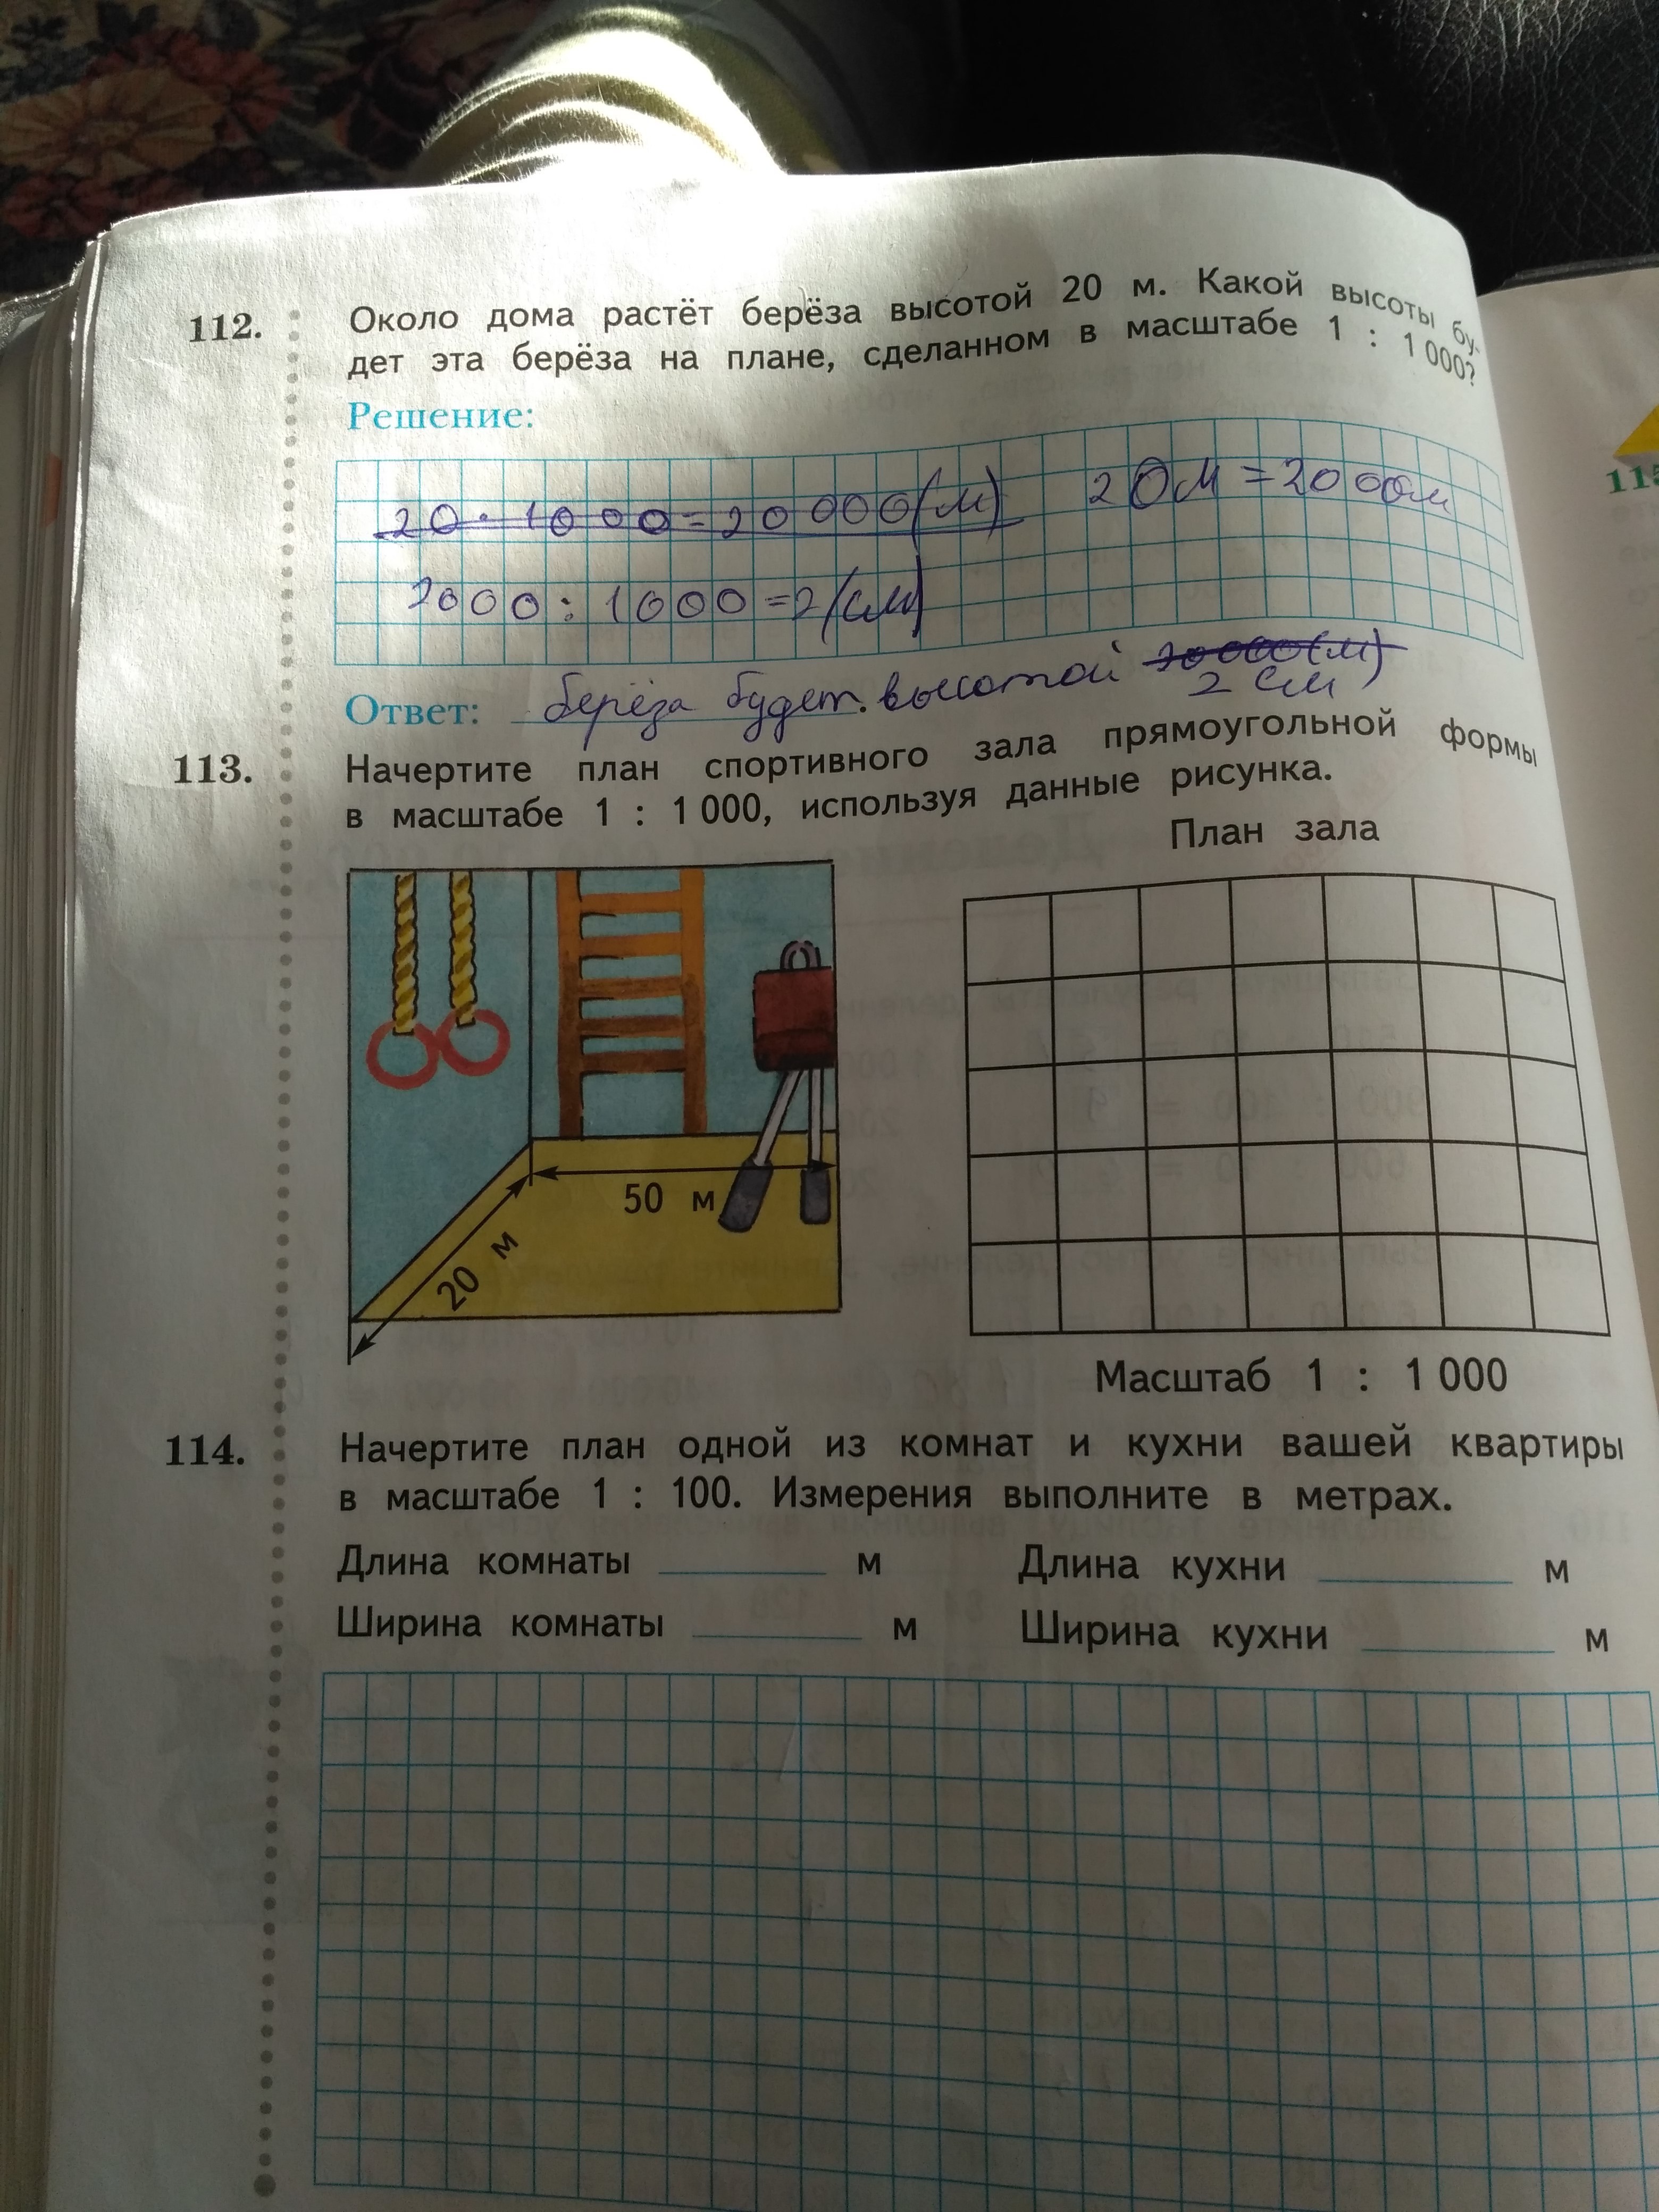 112. Около дома растёт берёза высотой 20 м. Какой высоты бу-
дет эта берёза на плане, сделанном в масштабе 1 : 1 000?
Решение:
20 · 1000 = 20 000 (м) 20 м = 2000 см
2000 : 1000 = 2 (см)
Ответ: берёза будет высотой 20 000 (м)
2 см
113. Начертите план спортивного зала прямоугольной формы
в масштабе 1 : 1 000, используя данные рисунка.
План зала
50 м
20 м
Масштаб 1 : 1 000
114. Начертите план одной из комнат и кухни вашей квартиры
в масштабе 1 : 100. Измерения выполните в метрах.
Длина комнаты м Длина кухни м
Ширина комнаты м Ширина кухни м